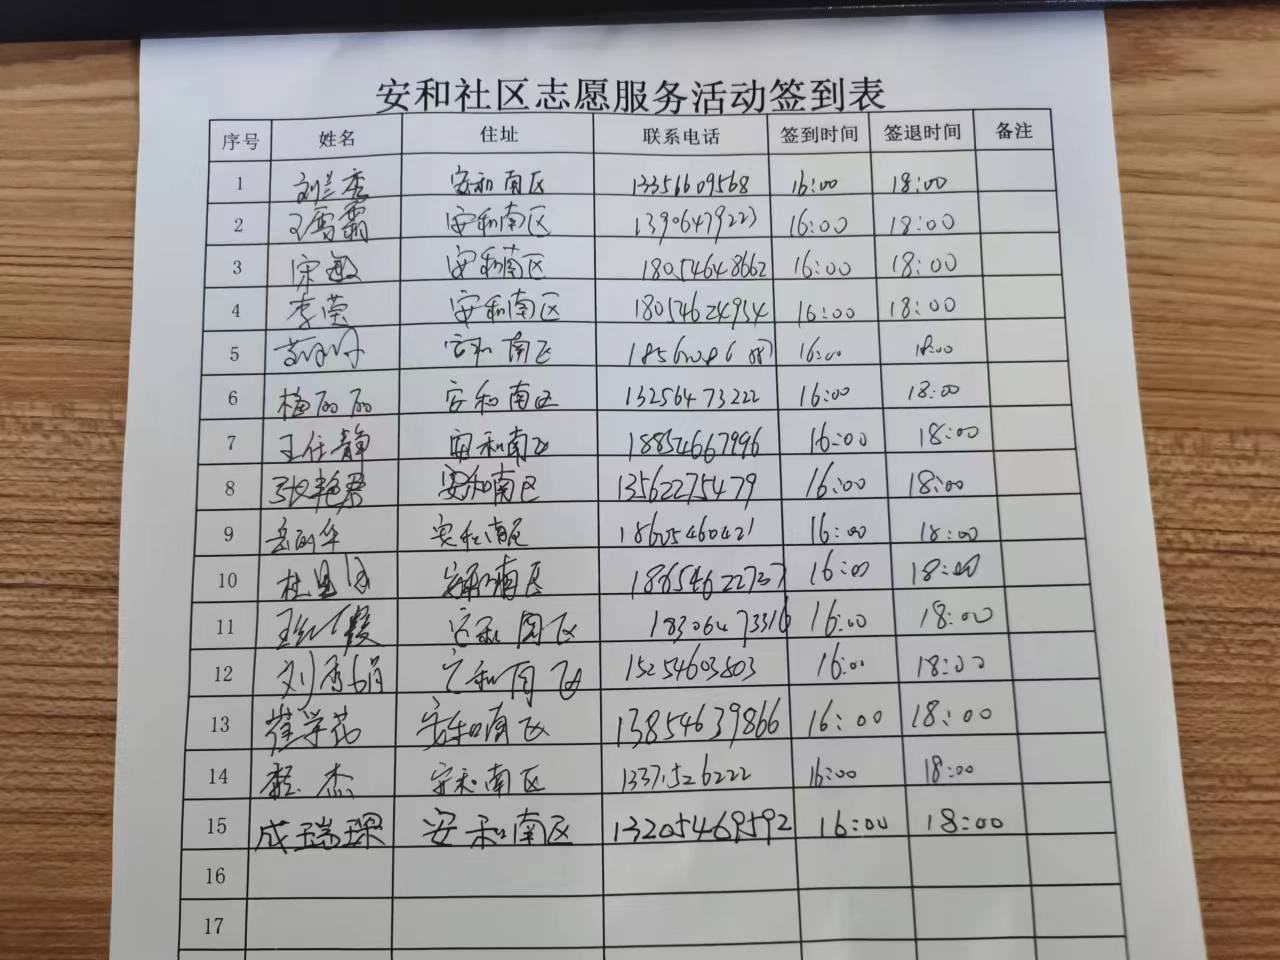 安和社区志愿服务活动签到表
序号 姓名 住址 联系电话 签到时间 签退时间 备注
1 刘兰秀 安和南区 13356609568 16:00 18:00
2 王雪霜 安和南区 13906479223 16:00 18:00
3 宋敏 安和南区 18054648662 16:00 18:00
4 李莹 安和南区 18054624954 16:00 18:00
5 安和南区 16:00 18:00
6 梅丽丽 安和南区 13256473222 16:00 18:00
7 王任静 安和南区 18854667996 16:00 18:00
8 张艳君 安和南区 13562275479 16:00 18:00
9 岳丽华 安和南区 18605460421 16:00 18:00
10 安和南区 18654622737 16:00 18:00
11 王红霞 安和南区 18306473316 16:00 18:00
12 刘秀娟 安和南区 15254603803 16:00 18:00
13 崔学花 安和南区 13854639866 16:00 18:00
14 杰 安和南区 13371526222 16:00 18:00
15 成瑞琛 安和南区 13205469592 16:00 18:00
16
17